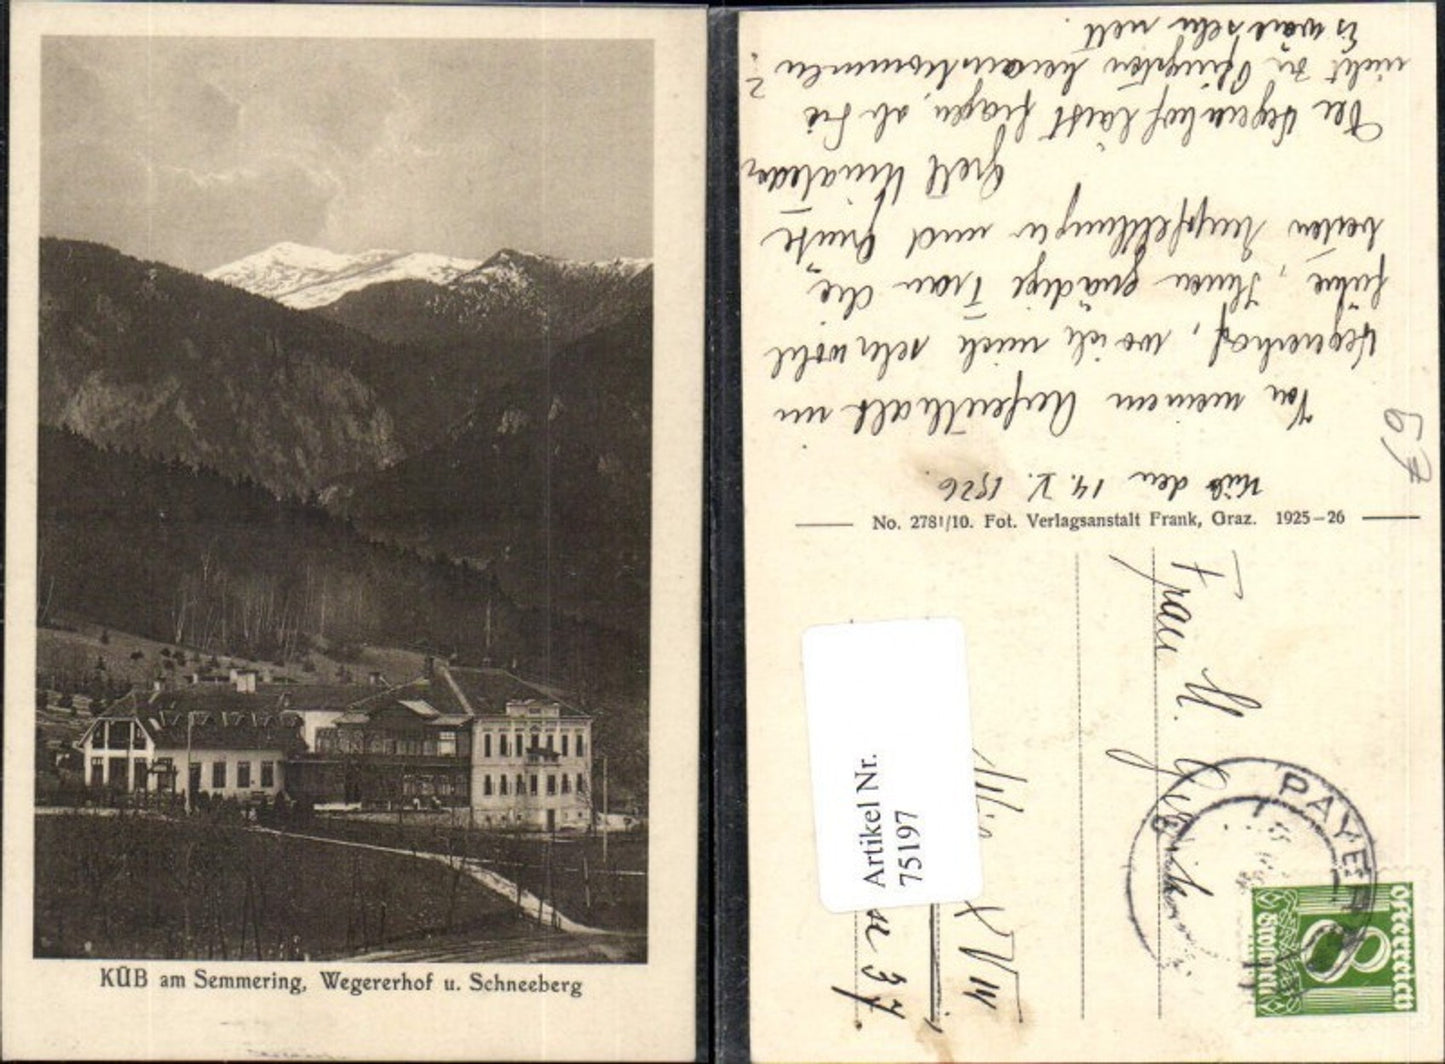 KÜB am Semmering, Wegererhof u. Schneeberg
Küb den 14. V. 1926.
Von meinem Aufenthalt im
Wegererhof, wo ich mich sehr wohl
fühle, Ihnen gnädige Frau die
besten Empfehlungen und Grüße
Der Wegererhof lässt fragen, ob Sie
nicht zu Pfingsten heraufkommen?
Es wäre sehr nett.
No. 2781/10. Fot. Verlagsanstalt Frank, Graz. 1925-26
67
Frau
Wien XVIII
37
Artikel Nr.
75197
PAYER
8
Österreich
Groschen